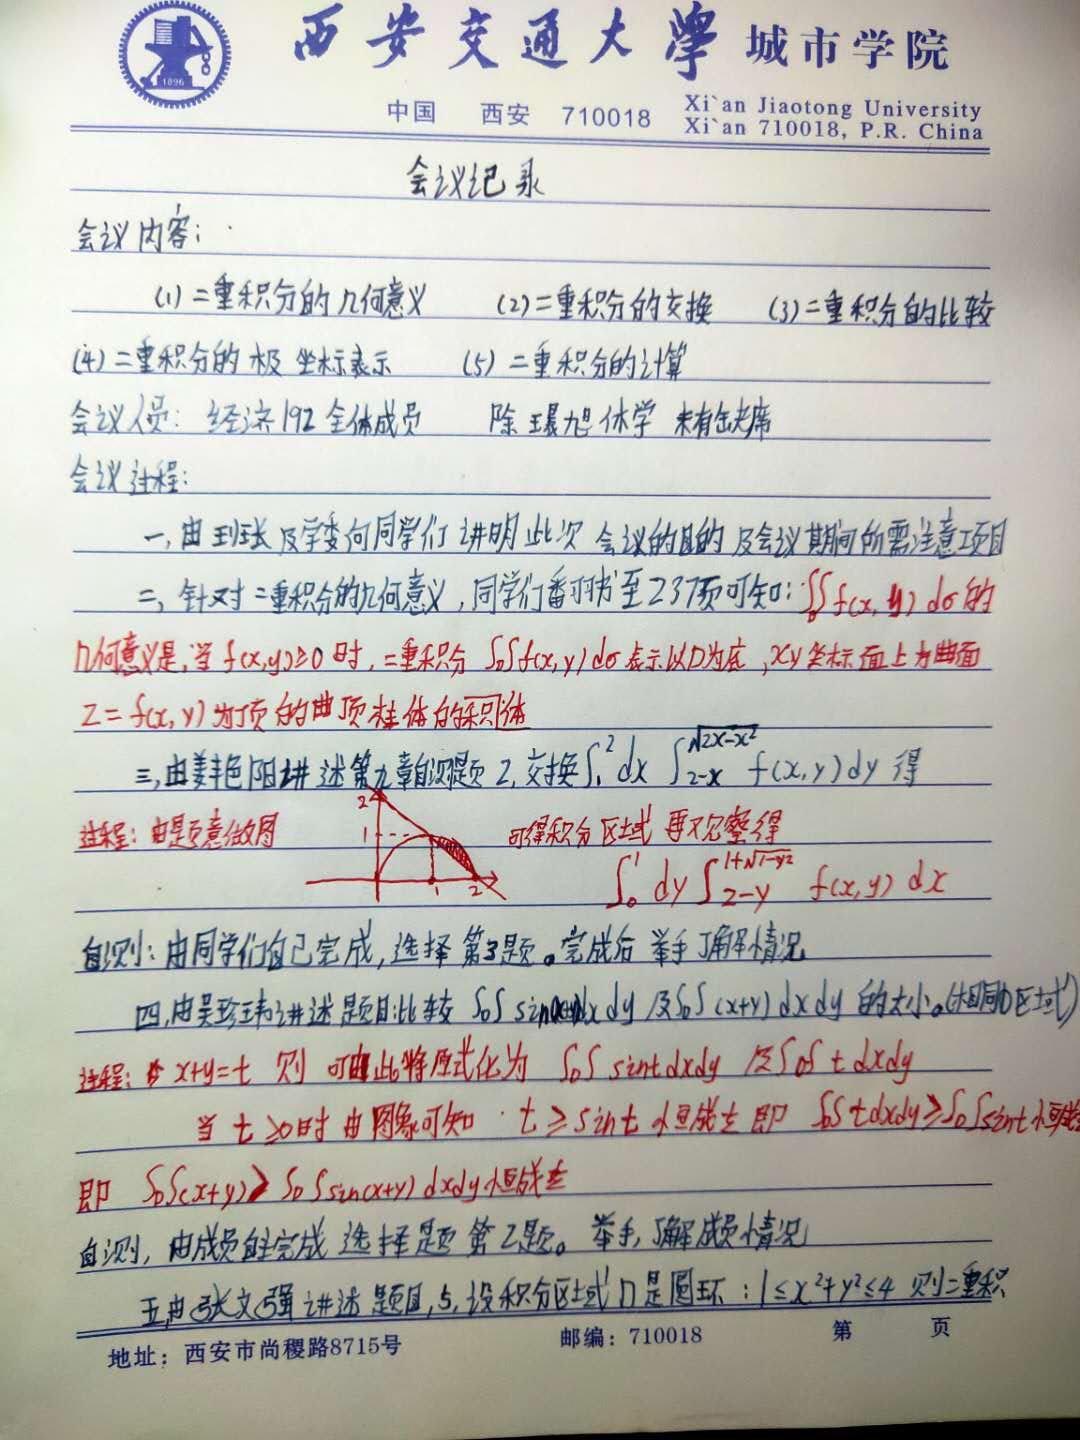 1896
西安交通大學 城市学院
中国 西安 710018 Xi`an Jiaotong University
Xi`an 710018, P.R. China
会议记录
会议内容:
(1)二重积分的几何意义 (2)二重积分的交换 (3)二重积分的比较
(4)二重积分的极坐标表示 (5)二重积分的计算
会议人员: 经济192全体成员 除 旭休学 未有缺席
会议过程:
一,由 及学委向同学们讲明此次会议的目的及会议期间所需注意项目
二,针对二重积分的几何意义,同学们翻书至237页可知:∬_D f(x,y)dσ的
几何意义是,当f(x,y)≥0时,二重积分∬_D f(x,y)dσ表示以D为底,xy坐标面上方曲面
Z=f(x,y)为顶的曲顶柱体的体积
三,由姜艳阳讲述第九章自测题2,交换∫₁² dx ∫_{2-x}^{√(2x-x²)} f(x,y)dy得
2
过程:由题意做图 1 可得积分区域 再观察得
1 2 ∫₀¹ dy ∫_{2-y}^{1+√(1-y²)} f(x,y)dx
自测:由同学们自己完成,选择第3题。完成后举手了解情况
四,由吴珍玮讲述题目:比较∬_D sin(x+y)dxdy及∬_D(x+y)dxdy的大小。(相同D区域)
过程: x+y=t 则可由此将原式化为 ∬_D sint dxdy 及∬_D t dxdy
当t≥0时由图象可知 t≥sint恒成立即 ∬_D t dxdy≥∬_D sint恒成立
即 ∬_D(x+y)≥∬_D sin(x+y)dxdy恒成立
自测,由成员自主完成选择题第2题。举手,了解成员情况
五,由张文强讲述题目,5,设积分区域D是圆环:1≤x²+y²≤4则二重积
地址:西安市尚稷路8715号 邮编:710018 第 页